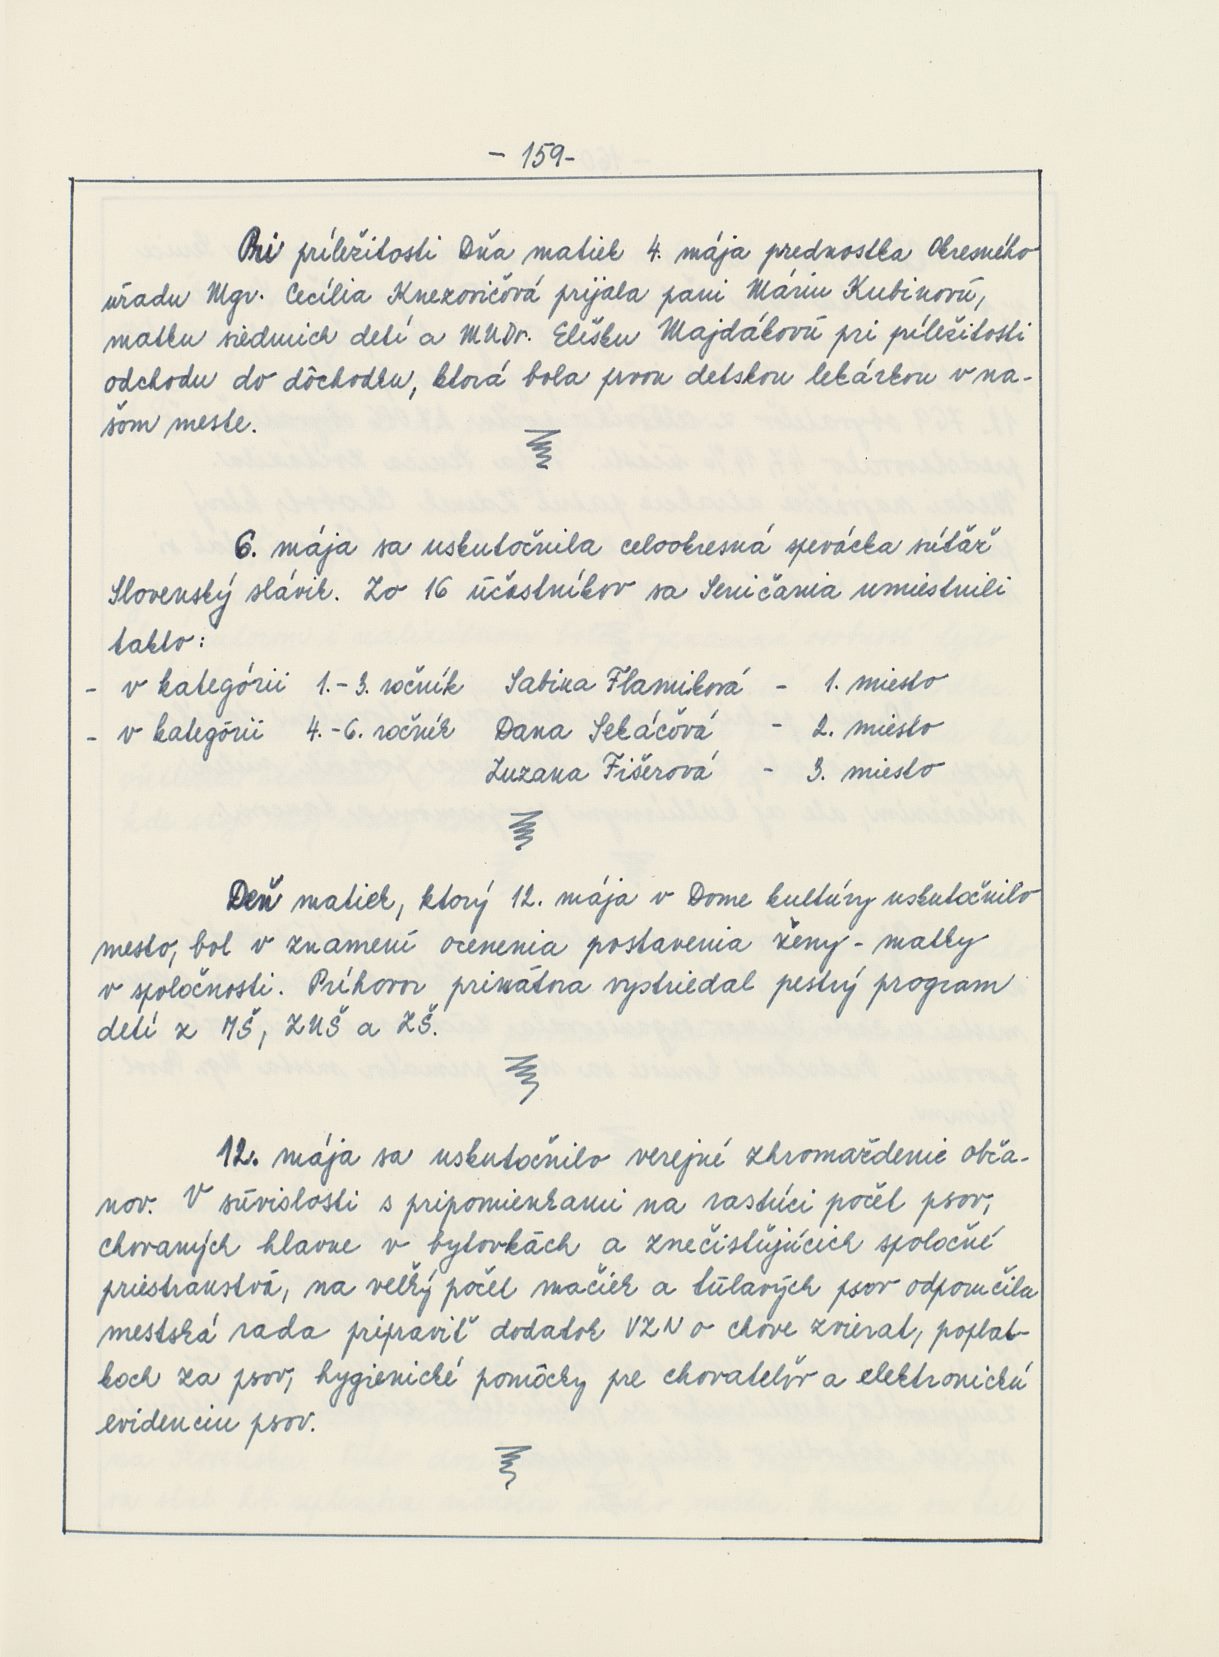 - 159-
Pri príležitosti Dňa matiek 4. mája prednostka Okresného
úradu Mgr. Cecília Knezovičová prijala pani Máriu Kubinovú,
matku siedmich detí a MUDr. Elišku Majdákovú pri príležitosti
odchodu do dôchodku, ktorá bola prvou detskou lekárkou v na-
šom meste.
6. mája sa uskutočnila celookresná spevácka súťaž
Slovenský slávik. Zo 16 účastníkov sa Seničania umiestnili
takto:
- v kategórii 1.-3. ročník Sabina Flamiková - 1. miesto
- v kategórii 4.-6. ročník Dana Sekáčová - 2. miesto
Zuzana Fišerová - 3. miesto
Deň matiek, ktorý 12. mája v Dome kultúry uskutočnilo
mesto, bol v znamení ocenenia postavenia ženy - matky
v spoločnosti. Príhovor primátora vystriedal pestrý program
detí z MŠ, ZUŠ a ZŠ.
12. mája sa uskutočnilo verejné zhromaždenie obča-
nov. V súvislosti s pripomienkami na rastúci počet psov,
chovaných hlavne v bytovkách a znečisťujúcich spoločné
priestranstvá, na veľký počet mačiek a túlavých psov odporučila
mestská rada pripraviť dodatok VZN o chove zvierat, poplat-
koch za psov, hygienické pomôcky pre chovateľov a elektronickú
evidenciu psov.